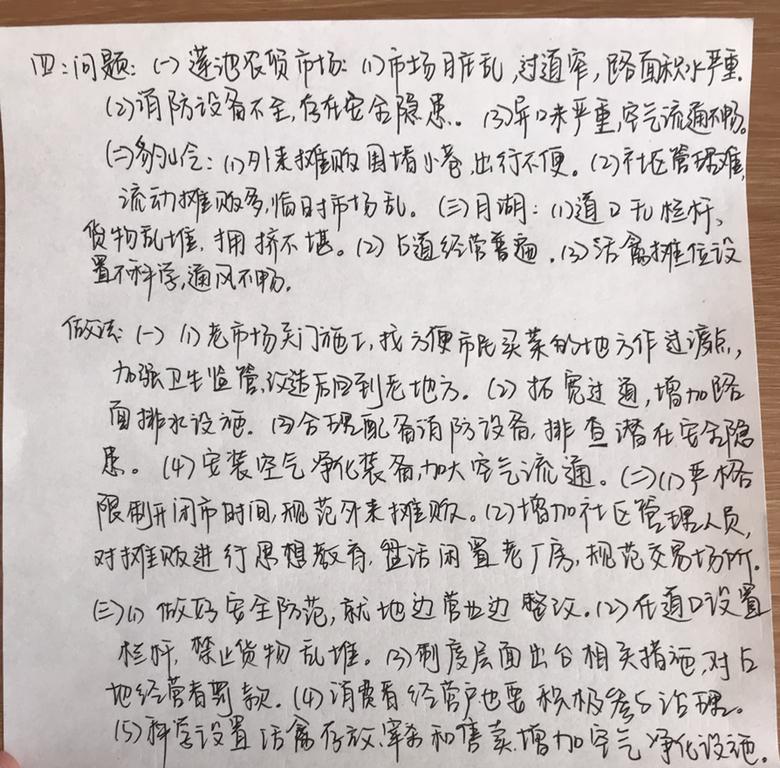 四：问题：(一)莲池农贸市场：(1)市场脏乱，过道窄，路面积水严重.
(2)消防设备不全，存在安全隐患。(3)异味严重，空气流通不畅。
(二) (1)外来摊贩围堵小巷，出行不便。(2)社区管理难，
流动摊贩多，临时市场乱。(三)月湖：(1)道口无栏杆、
货物乱堆，拥挤不堪。(2)占道经营普遍。(3)活禽摊位设
置不科学，通风不畅。
做法：(一)(1)老市场关门施工，找方便市民买菜的地方作过渡点，
加强卫生监管，改造后回到老地方。(2)拓宽过道，增加路
面排水设施。(3)合理配备消防设备，排查潜在安全隐
患。(4)安装空气净化装备，加大空气流通。(二)(1)严格
限制开闭市时间，规范外来摊贩。(2)增加社区管理人员，
对摊贩进行思想教育，盘活闲置老厂房，规范交易场所。
(三)(1)做好安全防范，就地边营业边整改。(2)在道口设置
栏杆，禁止货物乱堆。(3)制度层面出台相关措施，对占
地经营者罚款。(4)消费者经营户也要积极参与治理。
(5)科学设置活禽存放、宰杀和售卖，增加空气净化设施。